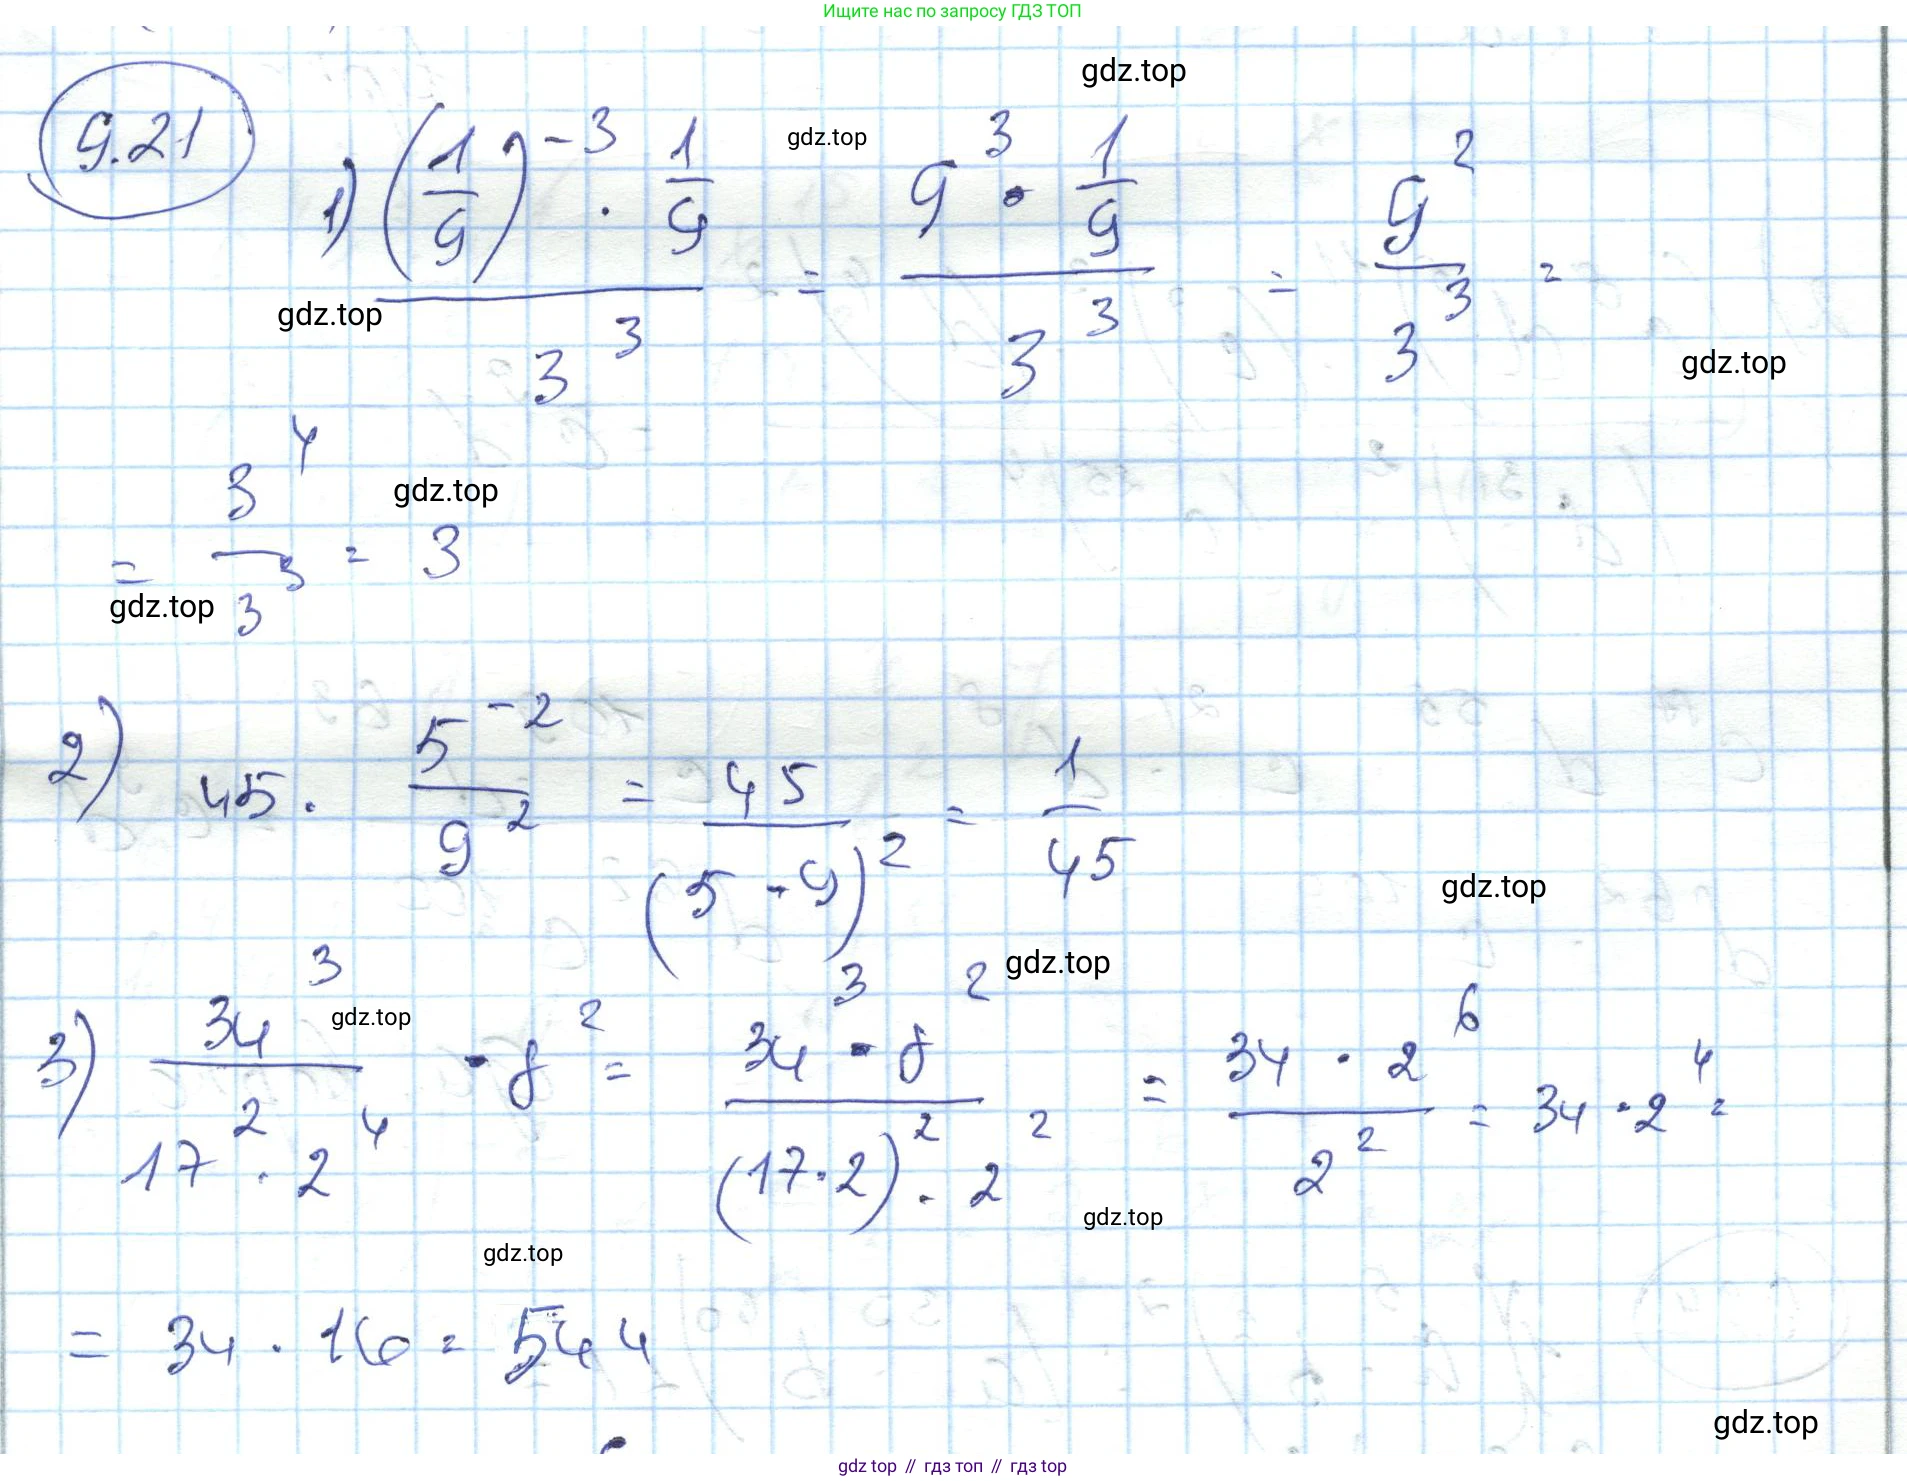 Ищите нас по запросу ГДЗ ТОП
gdz.top
9.21
gdz.top
1) (1/9)^-3 · 1/9 / 3^3 = 9^3 · 1/9 / 3^3 = 9^2 / 3^3 =
gdz.top
gdz.top
= 3^4 / 3^3 = 3
gdz.top
gdz.top
2) 45 · 5^-2 / 9^2 = 45 / (5 · 9)^2 = 1 / 45
gdz.top
gdz.top
3) 34^3 / 17^2 · 2^4 · 8^2 = 34^3 · 8^2 / (17 · 2)^2 · 2^2 = 34 · 2^6 / 2^2 = 34 · 2^4 =
gdz.top
gdz.top
gdz.top
= 34 · 16 = 544
gdz.top
gdz top // гдз топ // gdz top